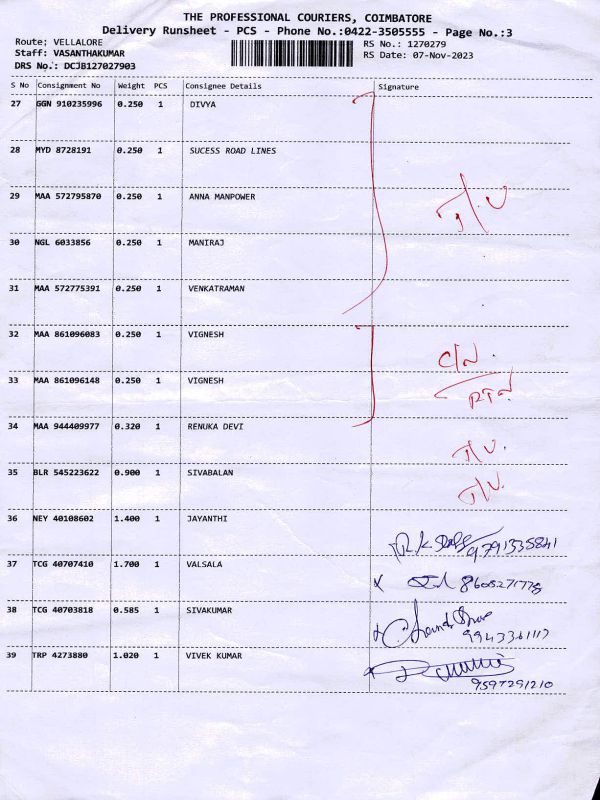 THE PROFESSIONAL COURIERS, COIMBATORE
Delivery Runsheet - PCS - Phone No.:0422-3505555 - Page No.:3
Route; VELLALORE RS No.: 1270279
Staff: VASANTHAKUMAR RS Date: 07-Nov-2023
DRS No.: DCJB127027903
S No Consignment No Weight PCS Consignee Details Signature
27 GGN 910235996 0.250 1 DIVYA
28 MYD 8728191 0.250 1 SUCESS ROAD LINES
29 MAA 572795870 0.250 1 ANNA MANPOWER
30 NGL 6033856 0.250 1 MANIRAJ
31 MAA 572775391 0.250 1 VENKATRAMAN
32 MAA 861096083 0.250 1 VIGNESH
33 MAA 861096148 0.250 1 VIGNESH
34 MAA 944409977 0.320 1 RENUKA DEVI
35 BLR 545223622 0.900 1 SIVABALAN
36 NEY 40108602 1.400 1 JAYANTHI
9791335841
37 TCG 40707410 1.700 1 VALSALA
38 TCG 40703818 0.585 1 SIVAKUMAR
39 TRP 4273880 1.020 1 VIVEK KUMAR
9597291210